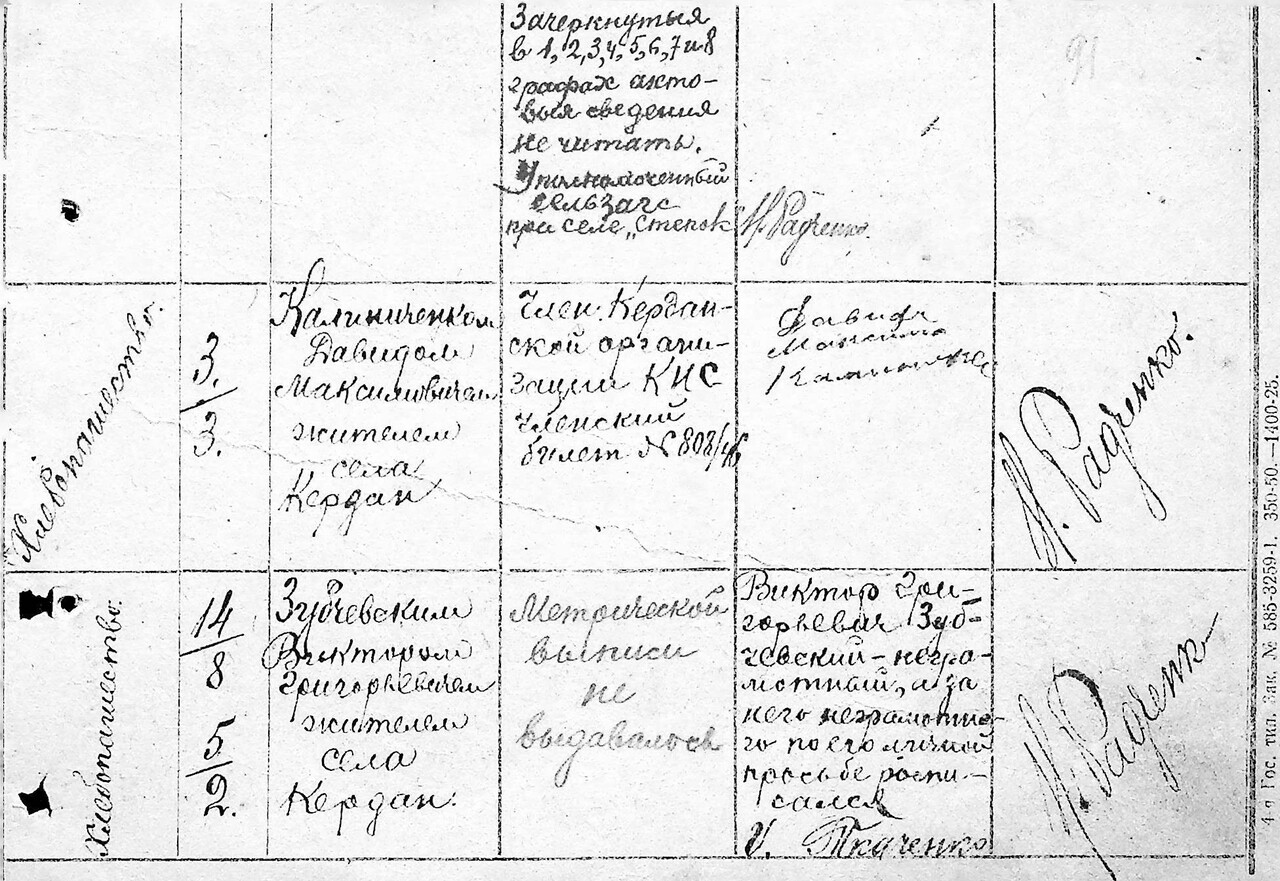 Зачеркнутыя
в 1, 2, 3, 4, 5, 6, 7 и 8
графах акто-
выя сведения
не читать.
Уполномоченный
сельзагс
при селе „Степок
М. Радченко.
91
Хлебопашество.
3.
3.
Калиниченком
Давидом
Максимовичем
жителем
села
Кердан
Член Кердан-
ской органи-
зации КНС
членский
билет № 808/46
Давид
М. Радченко.
Хлебопашество.
14
8
5
2.
Зубчевским
Виктором
Григорьевичем
жителем
села
Кердан.
Метрической
выписи
не
выдавалось
Виктор Гри-
горьевич Зуб-
чевский - негра-
мотный, а за
него неграмотно-
го по его личной
просьбе распи-
сался
И. Ткаченко
М. Радченк
4-я Гос. тип. Зак. № 585-3259-1. 350-50.—1400-25.